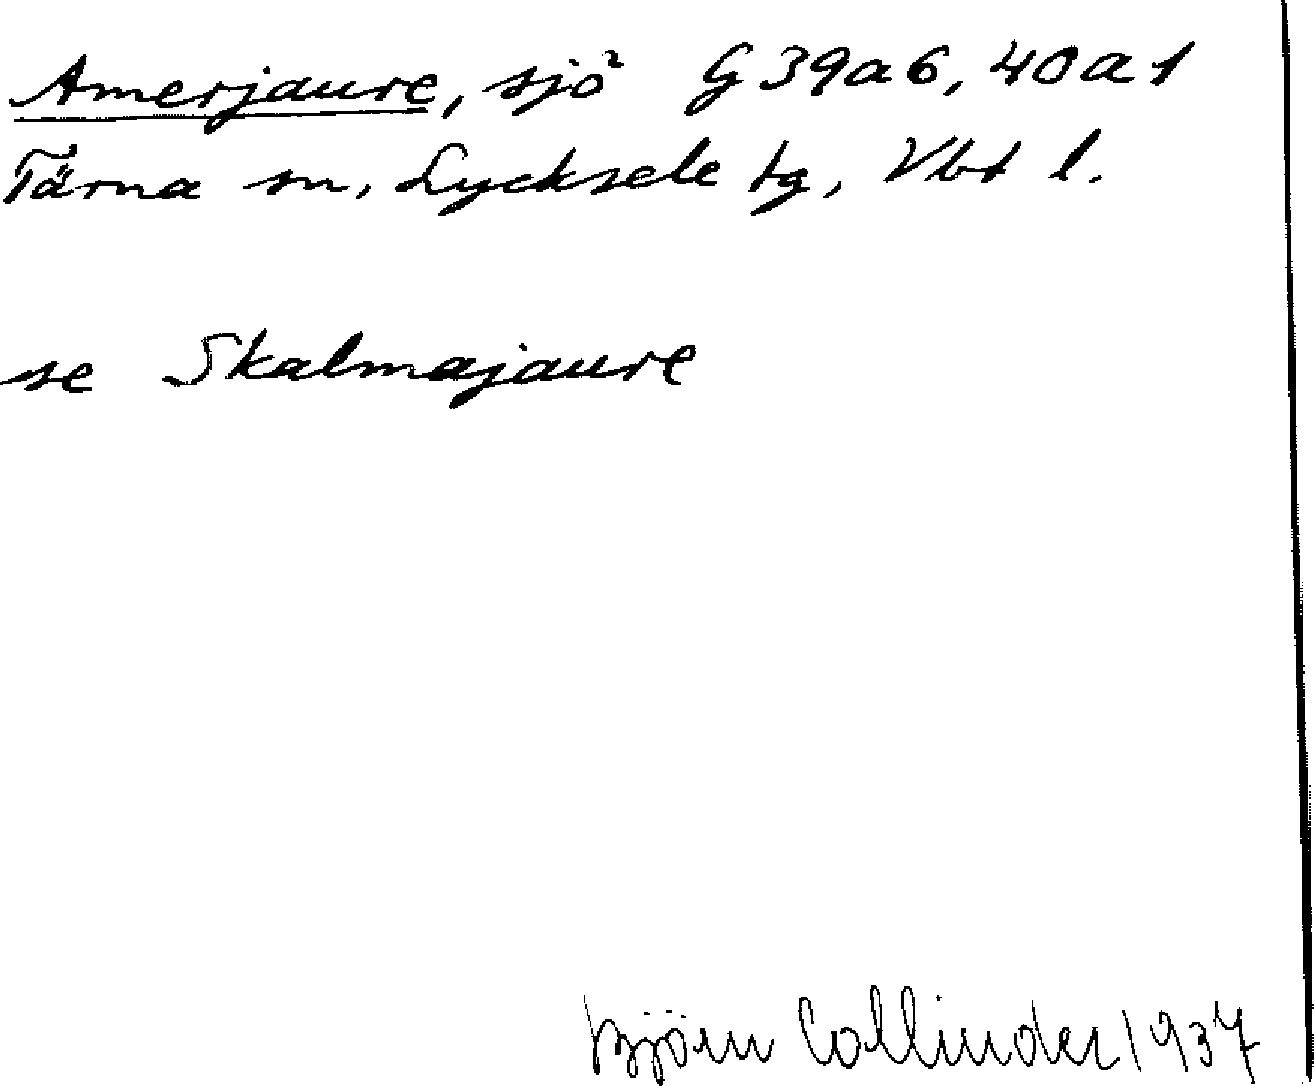 Amerjaure, sjö G 39a6, 40a1
Tärna sn, Lycksele tg, Vbt l.
se Skalmajaure
Björn Collinder 1937